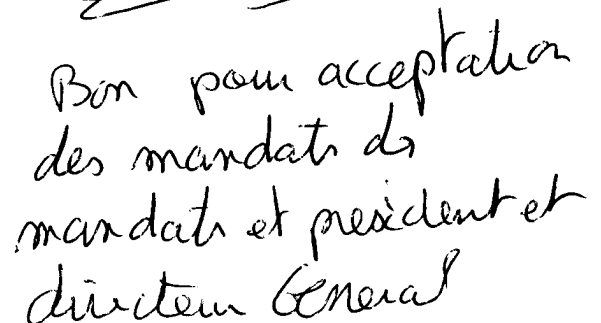 Bon pour acceptation
des mandats de
mandats et president et
directeur General